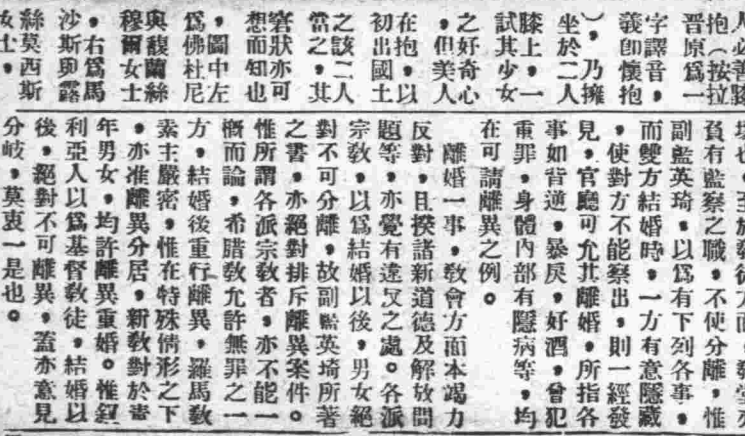 人必善膝
抱(按拉
晋原爲一
字譯音,
義卽懷抱
),乃擁
坐於二人
膝上,一
試其少女
之好奇心
,但美人
在抱,以
初出國土
之該二人
當之,其
窘狀亦可
想而知也
,圖中左
爲佛杜尼
與馥蘭絲
穆爾女士
,右爲馬
沙斯與露
絲莫西斯
女士。
也,至於教徒方面,教堂亦
負有監察之職,不使分離,惟
副監英琦,以爲有下列各事,
而雙方結婚時,一方有意隱藏
,使對方不能察出,則一經發
見,官廳可允其離婚,所指各
事如背逆,暴戾,好酒,曾犯
重罪,身體內部有隱病等,均
在可請離異之例。
離婚一事,敎會方面本竭力
反對,且揆諸新道德及解放問
題等,亦覺有違反之處。各派
宗敎,以爲結婚以後,男女絕
對不可分離,故副監英琦所著
之書,亦絕對排斥離異案件。
惟所謂各派宗敎者,亦不能一
概而論,希腊敎允許無罪之一
方,結婚後重行離異,羅馬敎
素主嚴密,惟在特殊情形之下
,亦准離異分居,新敎對於靑
年男女,均許離異重婚。惟叙
利亞人以爲基督敎徒,結婚以
後,絕對不可離異,蓋亦意見
分岐,莫衷一是也。